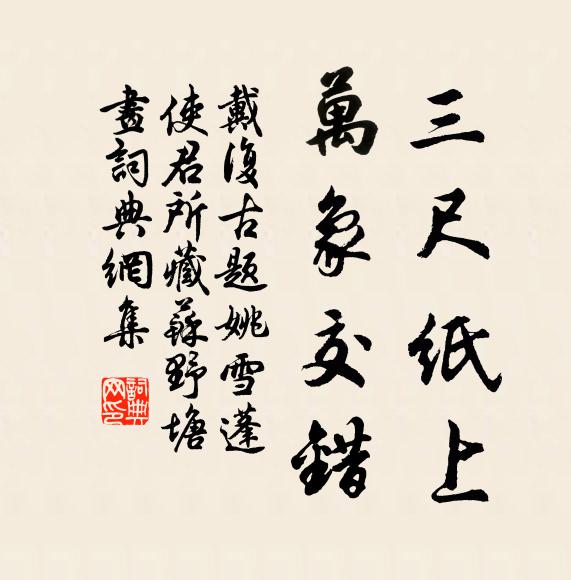 三尺紙上
萬象交錯
戴復古題姚雪蓬
使君所藏蘇野塘
畫詞典網集
詞典網印